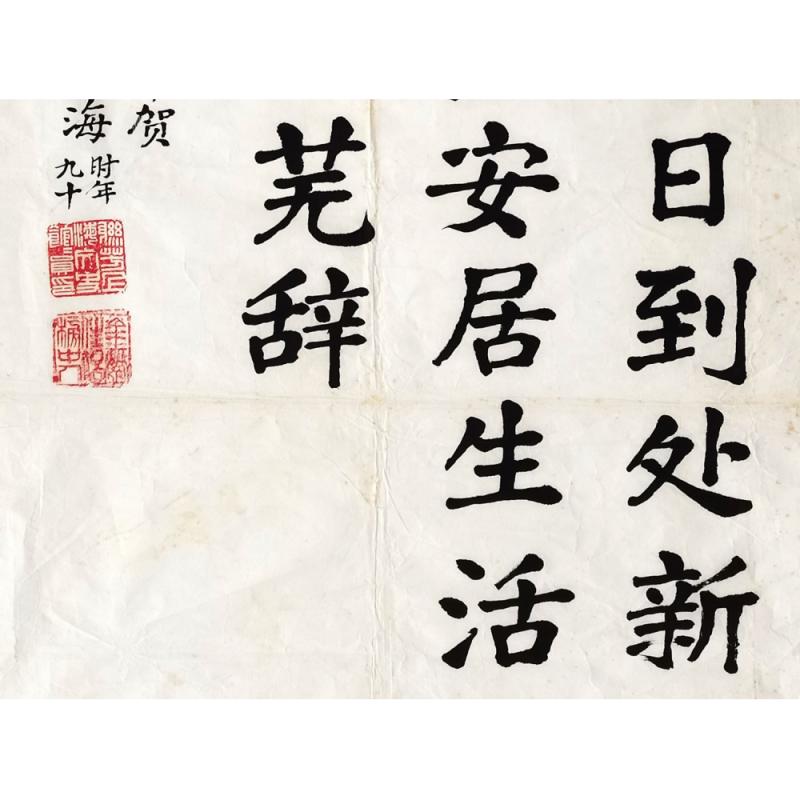 日到处新
安居生活
芜辞
贺
海时年九十